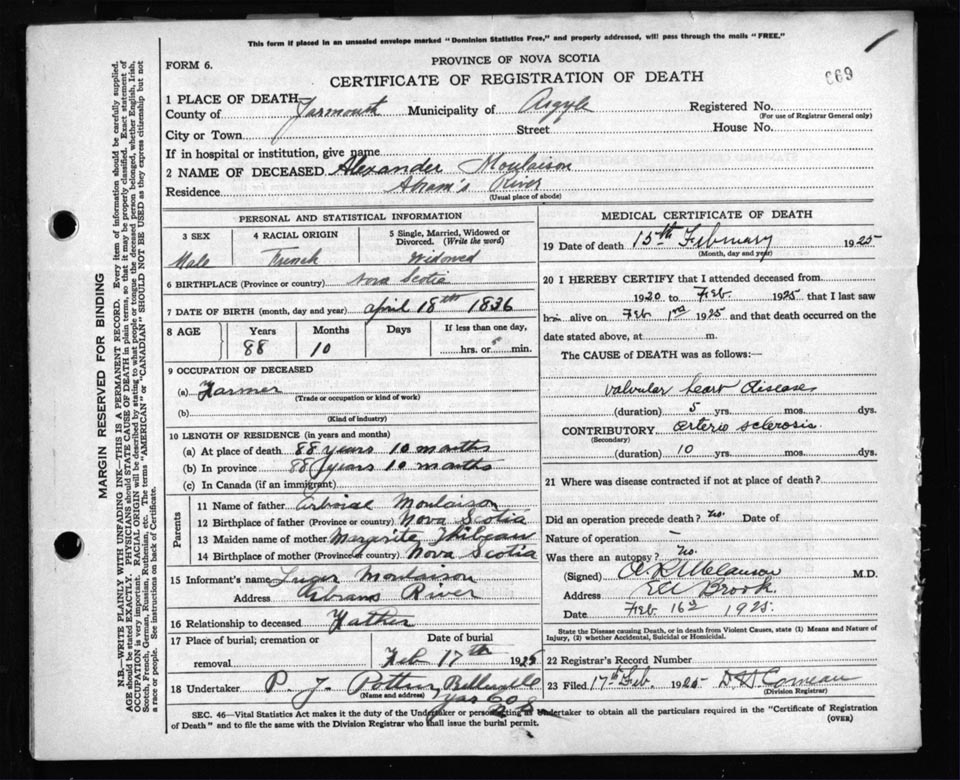 This form if placed in an unsealed envelope marked "Dominion Statistics Free," and properly addressed, will pass through the mails "FREE."
FORM 6.
PROVINCE OF NOVA SCOTIA
CERTIFICATE OF REGISTRATION OF DEATH
669
1 PLACE OF DEATH
County of Yarmouth Municipality of Argyle Registered No.
(For use of Registrar General only)
City or Town Street House No.
If in hospital or institution, give name
2 NAME OF DECEASED Alexander Moulaison
Residence Abram's River
(Usual place of abode)
PERSONAL AND STATISTICAL INFORMATION
3 SEX 4 RACIAL ORIGIN 5 Single, Married, Widowed or Divorced. (Write the word)
Male French Widowed
6 BIRTHPLACE (Province or country) Nova Scotia
7 DATE OF BIRTH (month, day and year) April 18th 1836
8 AGE Years Months Days If less than one day,
88 10 hrs. or min.
9 OCCUPATION OF DECEASED
(a) Farmer
(Trade or occupation or kind of work)
(b)
(Kind of industry)
10 LENGTH OF RESIDENCE (in years and months)
(a) At place of death 88 years 10 months
(b) In province 88 years 10 months
(c) In Canada (if an immigrant)
Parents
11 Name of father Moulaison
12 Birthplace of father (Province or country) Nova Scotia
13 Maiden name of mother Margerite Thibeau
14 Birthplace of mother (Province or country) Nova Scotia
15 Informant's name Moulaison
Address Abrams River
16 Relationship to deceased Father
17 Place of burial; cremation or removal Date of burial
Feb 17th 1925
18 Undertaker P. J. Pottier Belleville
(Name and address) Yar Co N.S.
MEDICAL CERTIFICATE OF DEATH
19 Date of death 15th February 1925
(Month, day and year)
20 I HEREBY CERTIFY that I attended deceased from
1920 to Feb 1925 that I last saw
him alive on Feb 1925 and that death occurred on the
date stated above, at m.
The CAUSE OF DEATH was as follows:
valvular heart disease
(duration) 5 yrs. mos. dys.
CONTRIBUTORY arterio sclerosis
(Secondary)
(duration) 10 yrs. mos. dys.
21 Where was disease contracted if not at place of death?
Did an operation precede death? no. Date of
Nature of operation –
Was there an autopsy? no.
(Signed) M.D.
Address Eel Brook.
Date Feb 16 1925.
State the Disease causing Death, or in death from Violent Causes, state (1) Means and Nature of Injury, (2) whether Accidental, Suicidal or Homicidal.
22 Registrar's Record Number
23 Filed 17th Feb. 1925 Comeau
(Division Registrar)
SEC. 46—Vital Statistics Act makes it the duty of the Undertaker or person acting as Undertaker to obtain all the particulars required in the "Certificate of Registration
of Death" and to file the same with the Division Registrar who shall issue the burial permit.
(OVER)
MARGIN RESERVED FOR BINDING
N.B.—WRITE PLAINLY WITH UNFADING INK—THIS IS A PERMANENT RECORD. Every item of information should be carefully supplied.
AGE should be stated EXACTLY. PHYSICIANS should STATE CAUSE OF DEATH in plain terms, so that it may be properly classified. Exact statement of
OCCUPATION is very important. RACIAL ORIGIN will be described by stating to what people or tongue the deceased person belonged, whether English, Irish,
Scotch, French, German, Russian, Ruthenian, etc. The terms "AMERICAN" or "CANADIAN" SHOULD NOT BE USED as they express citizenship but not
a race or people. See instructions on back of Certificate.